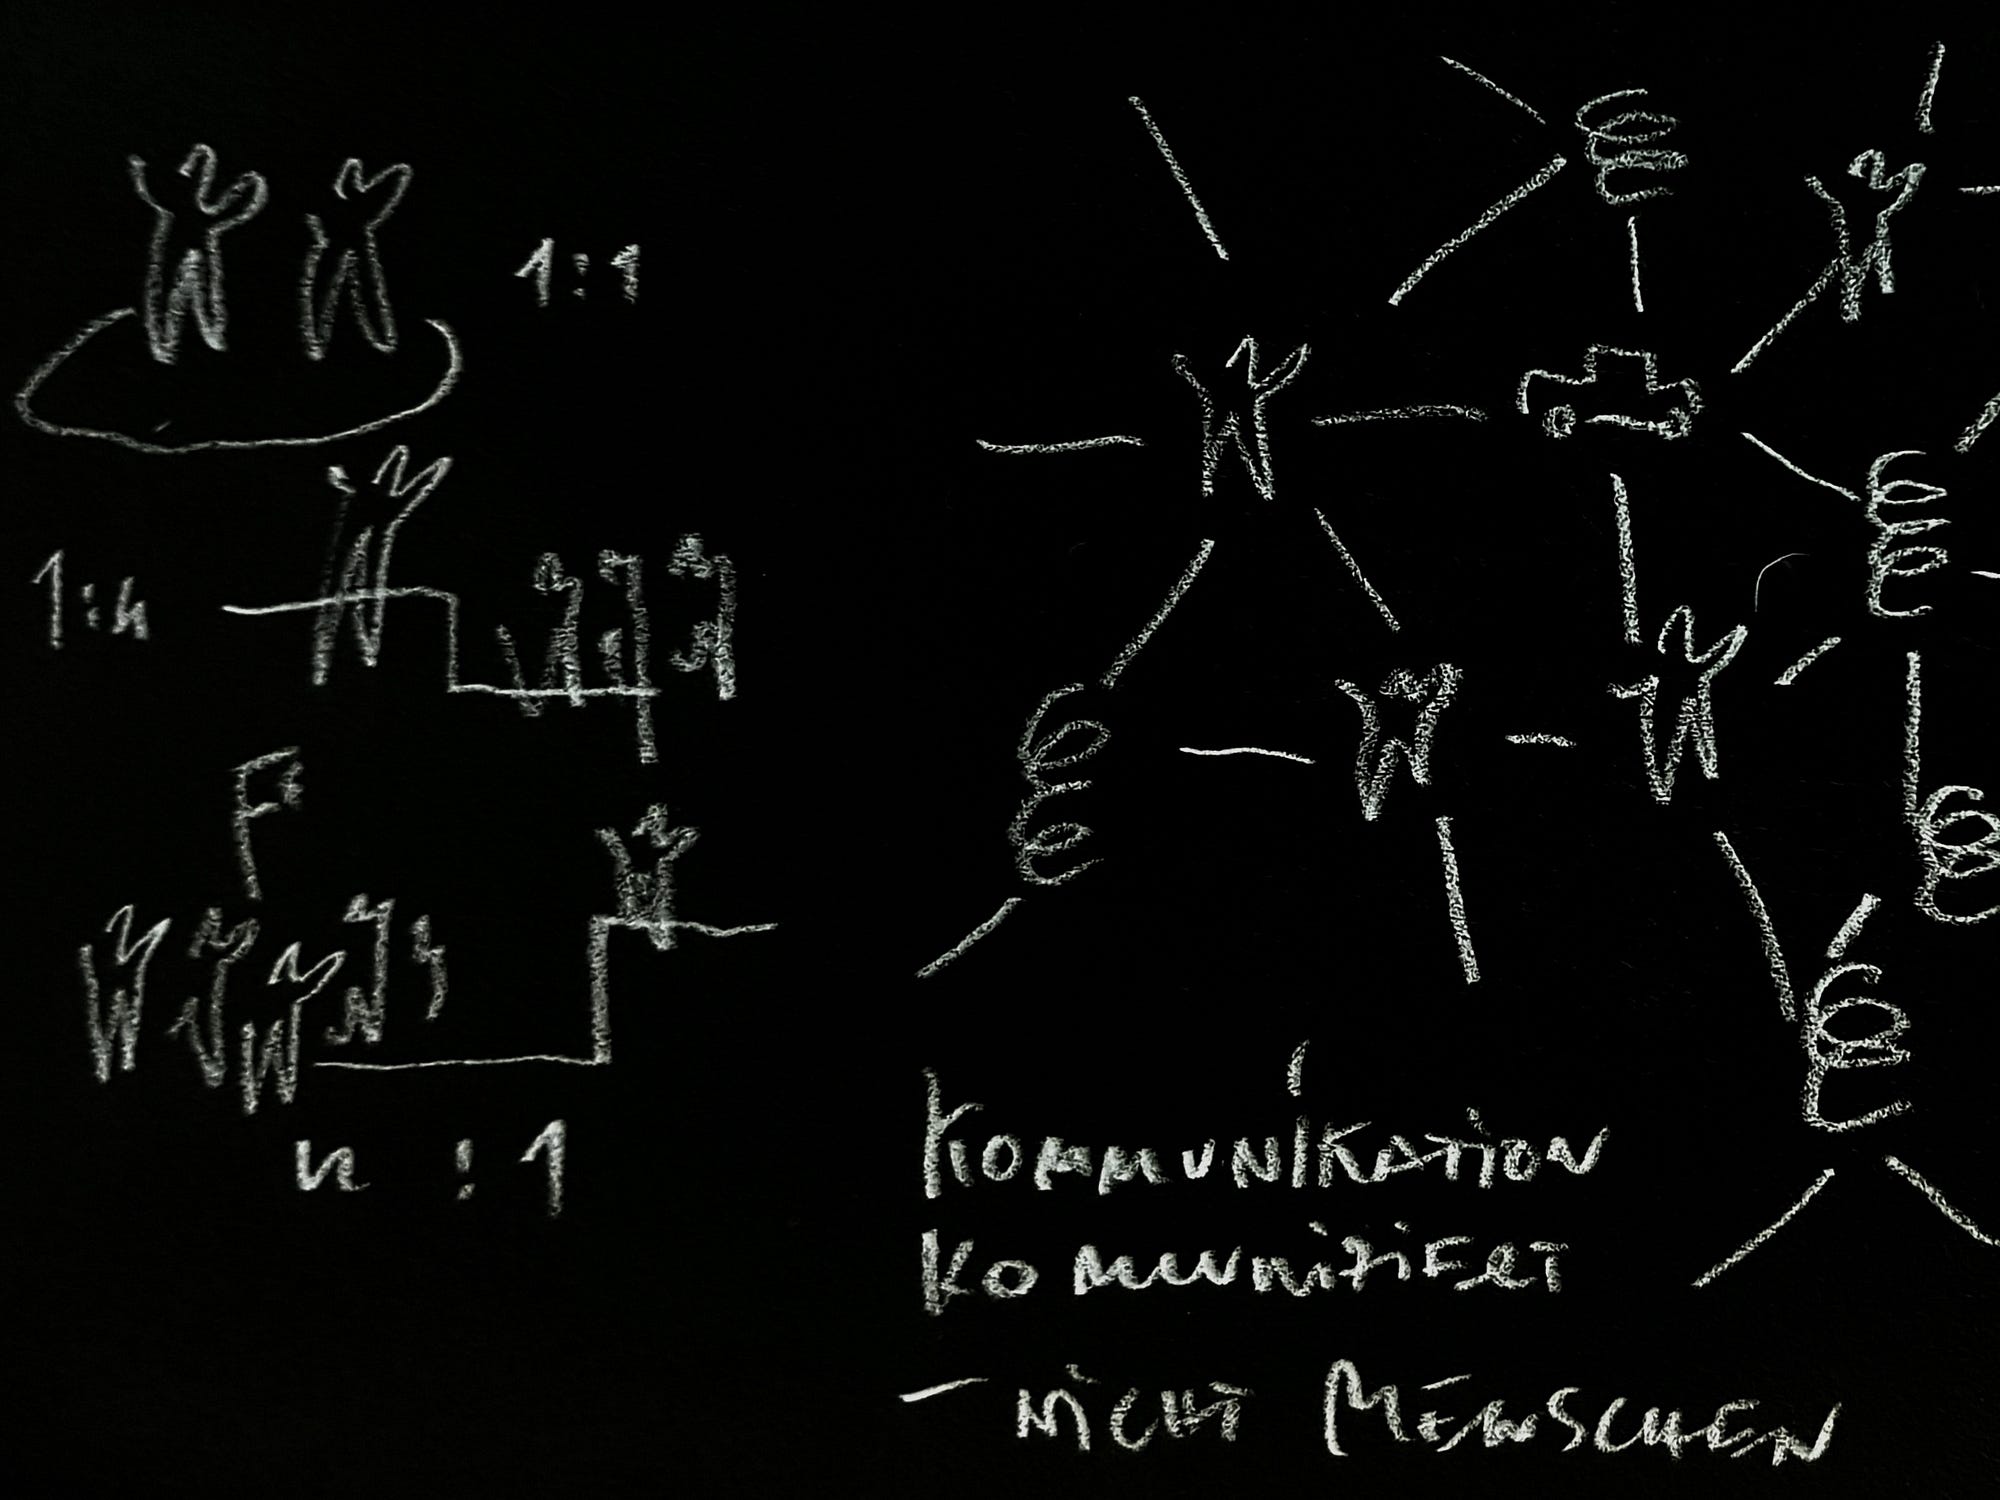 1:1
1:n
n:1
KOMMUNIKATION
KOMMUNIZIERT
– NICHT MENSCHEN